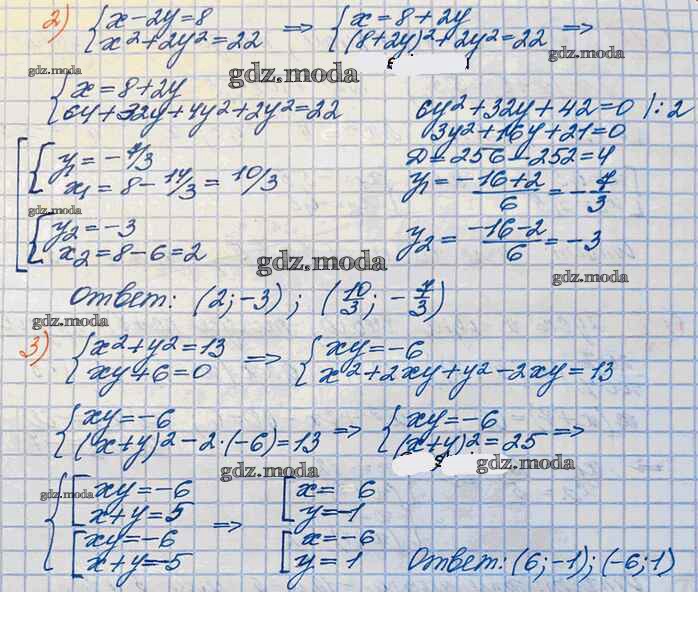 2) { x - 2y = 8 => { x = 8 + 2y =>
{ x² + 2y² = 22 { (8+2y)² + 2y² = 22
gdz.moda gdz.moda gdz.moda
{ x = 8 + 2y
{ 64 + 32y + 4y² + 2y² = 22
6y² + 32y + 42 = 0 | : 2
3y² + 16y + 21 = 0
D = 256 - 252 = 4
y₁ = (-16+2)/6 = -7/3
y₂ = (-16-2)/6 = -3
[ { y₁ = -7/3
{ x₁ = 8 - 14/3 = 10/3
gdz.moda
{ y₂ = -3
{ x₂ = 8 - 6 = 2
gdz.moda gdz.moda
Ответ: (2; -3); (10/3; -7/3)
gdz.moda
3) { x² + y² = 13 => { xy = -6
{ xy + 6 = 0 { x² + 2xy + y² - 2xy = 13
{ xy = -6 => { xy = -6 =>
{ (x+y)² - 2·(-6) = 13 { (x+y)² = 25
gdz.moda gdz.moda
gdz.moda
{ [ xy = -6 => [ x = 6
[ x + y = 5 [ y = -1
[ xy = -6 [ x = -6
[ x + y = -5 [ y = 1
Ответ: (6; -1); (-6; 1)